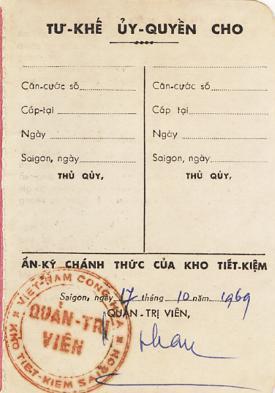 TỰ-KHẾ ỦY-QUYỀN CHO
Căn-cước số
Cấp-tại
Ngày
Saigon, ngày
THỦ QŨY,
Căn-cước số
Cấp tại
Ngày
Saigon, ngày
THỦ QŨY,
ẤN-KÝ CHÁNH THỨC CỦA KHO TIẾT-KIỆM
Saigon, ngày 17 tháng 10 năm 1969
QUẢN-TRỊ VIÊN,
VIỆT-NAM CỘNG-HÒA
QUẢN-TRỊ
VIÊN
KHO TIẾT-KIỆM